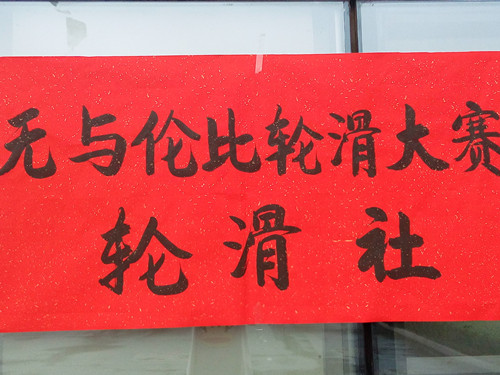 无与伦比轮滑大赛
轮滑社